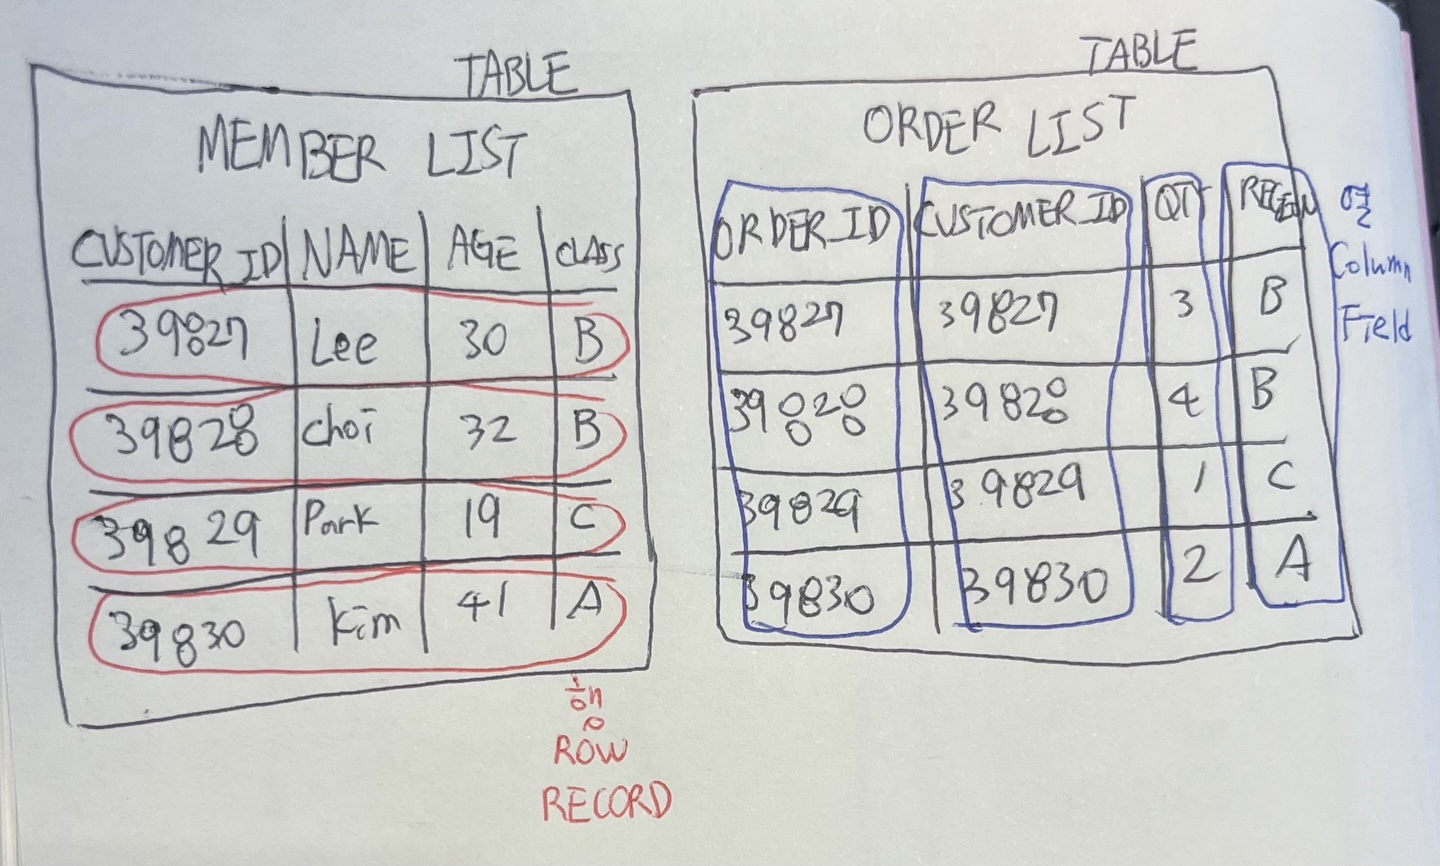 TABLE
MEMBER LIST
CUSTOMER_ID NAME AGE CLASS
39827 Lee 30 B
39828 choi 32 B
39829 Park 19 C
39830 Kim 41 A
행
ROW
RECORD
TABLE
ORDER LIST
ORDER_ID CUSTOMER_ID QTY REGION
39827 39827 3 B
39828 39828 4 B
39829 39829 1 C
39830 39830 2 A
열
Column
Field